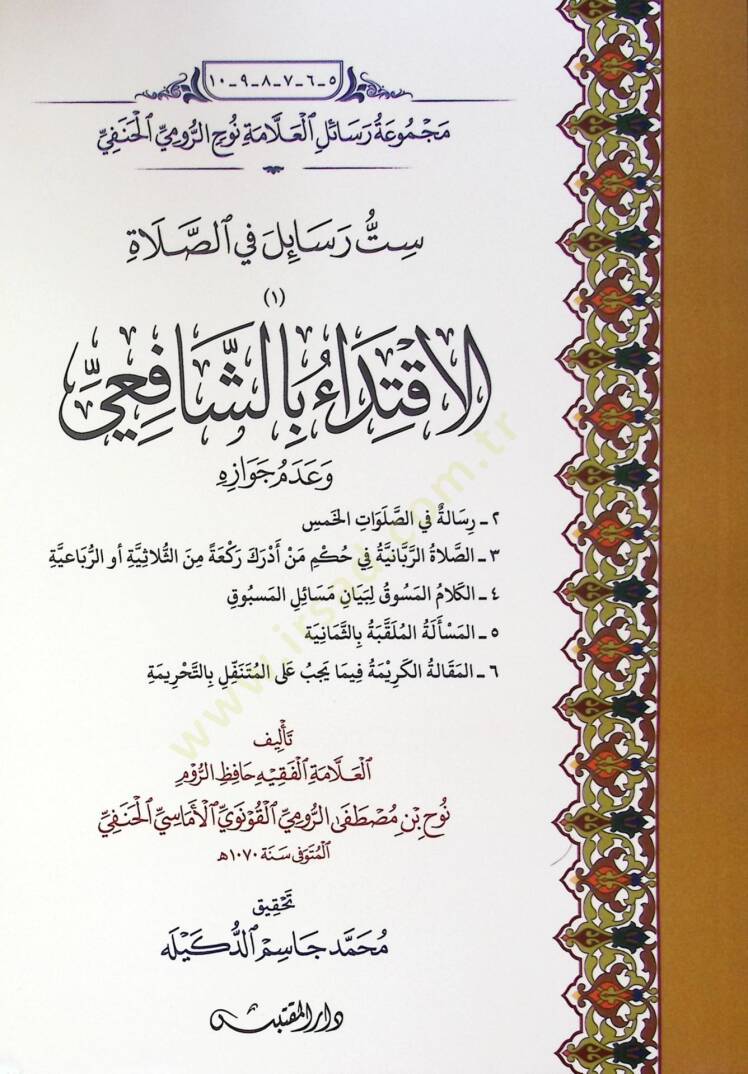 ٥-٦-٧-٨-٩-١٠
مَجْمُوعَةُ رَسَائِلِ ٱلْعَلَّامَةِ نُوحٍ الرُّومِيِّ ٱلْحَنَفِيِّ
سِتُّ رَسَائِلَ فِي ٱلصَّلَاةِ
(١)
الِاقْتِدَاءُ بِالشَّافِعِيِّ
وَعَدَمُ جَوَازِهِ
٢ ـ رِسَالَةٌ فِي الصَّلَوَاتِ الخَمسِ
٣ ـ الصَّلاةُ الرَّبَانيَّةُ فِي حُكْمِ مَنْ أَدْرَكَ رَكْعَةً مِنَ الثُّلاثِيَّةِ أو الرُّبَاعِيَّةِ
٤ ـ الكَلامُ المَسوُقُ لِبَيَانِ مَسَائلِ المَسبُوقِ
٥ ـ المَسْأَلَةُ المُلَقَّبَةُ بِالثَّمَانِيَة
٦ ـ المَقَالةُ الكَرِيْمَةُ فِيمَا يَجبُ عَلى المُتَنَفِّلِ بِالتَّحْرِيمَةِ
تَأْلِيف
ٱلْعَلَّامَةِ ٱلْفَقِيهِ حَافِظِ الرُّومِ
نُوحِ بْنِ مُصْطَفَى الرُّومِيِّ ٱلْقُونَوِيِّ ٱلْأَمَاسِيِّ ٱلْحَنَفِيِّ
ٱلْمُتَوَفَّى سَنَة ١٠٧٠هـ
تَحْقِيق
مُحَمَّد جَاسِم ٱلدُّكَيْلَه
دار المقتبس
www.irsad.com.tr